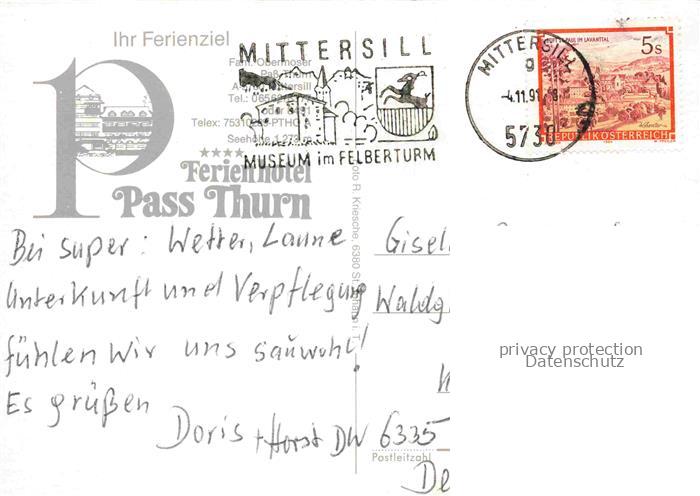 Ihr Ferienziel
Fam. Obermoser
Paß Thurn
Mittersill
Tel.: 06562
Telex:
Seehöhe 1.273 m
★★★★
Ferienhotel
Pass Thurn
MITTERSILL
MUSEUM im FELBERTURM
MITTERSILL
-4.11.91
5730
ST. PAUL IM LAVANTTAL
5s
REPUBLIK ÖSTERREICH
Foto R. Kriesche, 6380 St. Johann i. T.
Bei super: Wetter, Laune
Unterkunft und Verpflegung
fühlen wir uns sauwohl!
Es grüßen
Doris + Horst
Gisel
Waldg
DW 6335
Postleitzahl
De
privacy protection
Datenschutz